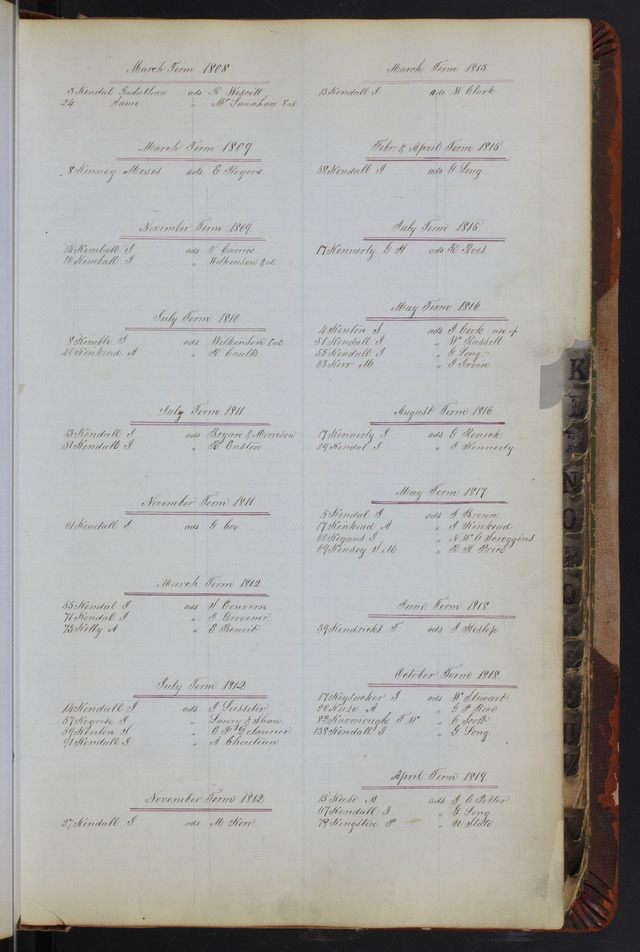 March Term 1808
3 Kendal Juduthan ads R Wescott
24 Same " Mc Lanahan &al
March Term 1809
8 Kenney Moses ads E Rogers
November Term 1809
14 Kemball J ads V Carrico
16 Kemball J " Wilkinson &al
July Term 1810
8 Kemble J ads Wilkinson &al
20 Kinkead A " R Caulk
July Term 1811
13 Kendall J ads Bryan & Morrison
51 Kendall J " R Easton
November Term 1811
61 Kendall J ads G Coy
March Term 1812
55 Kendal J ads S Converse
71 Kendal J " J Grovener
73 Kelly A " E Benoit
July Term 1812
14 Kendall J ads J
57 J " Lowry & Shaw
59 Kenton S " C P
91 Kendall J " A Chouteau
November Term 1812
27 Kendall J ads M Kerr
March Term 1813
13 Kendall J ads W Clark
Febr. & April Term 1815
58 Kendall J ads G Long
July Term 1815
17 Kennerly G H ads R Ross
May Term 1816
4 Kenton S ads J Cook use of
51 Kendall J " Wm Russell
55 Kendall J " G Long
63 Kerr M " J Irvin
August Term 1816
17 Kennerly J ads G Renick
29 Kendal J " J Kennedy
May Term 1817
5 Kendal J ads J Brown
17 Kinkead A " J Kinkead
60 Kegans J " N W C Scroggins
69 Kensey S M " R H Price
June Term 1818
39 Kendricks T ads J Heslep
October Term 1818
17 Keysucker J ads W Stewart
26 Kuse A " G P
82 Kavonough T W " C Scott
138 Kendall J " G Long
April Term 1819
15 Keese A ads J C Potter
67 Kendall J " G Long
79 Kingston P " U State
K